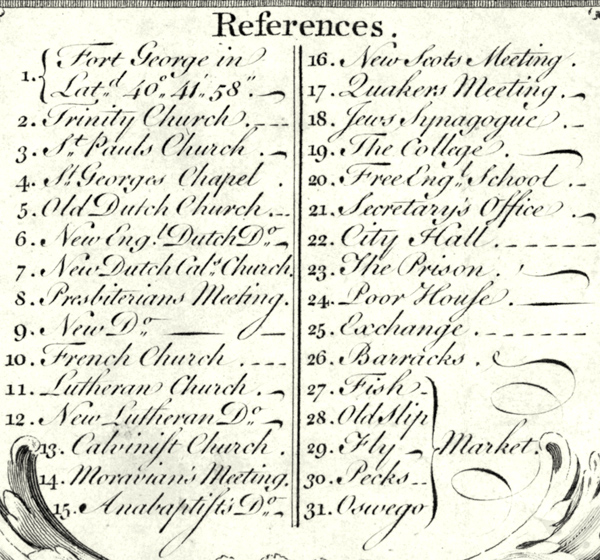 References.
1. Fort George in
Lat.d 40°. 41'. 58".
2. Trinity Church.
3. St. Pauls Church.
4. St. Georges Chapel.
5. Old Dutch Church.
6. New Eng.l Dutch Do.
7. New Dutch Cal.t Church.
8. Presbiterians Meeting.
9. New Do.
10. French Church.
11. Lutheran Church.
12. New Lutheran Do.
13. Calvinist Church.
14. Moravian's Meeting.
15. Anabaptist's Do.
16. New Scots Meeting.
17. Quakers Meeting.
18. Jews Synagogue.
19. The College.
20. Free Eng.l School.
21. Secretary's Office.
22. City Hall.
23. The Prison.
24. Poor House.
25. Exchange.
26. Barracks.
27. Fish
28. Old Slip
29. Fly Market.
30. Pecks
31. Oswego